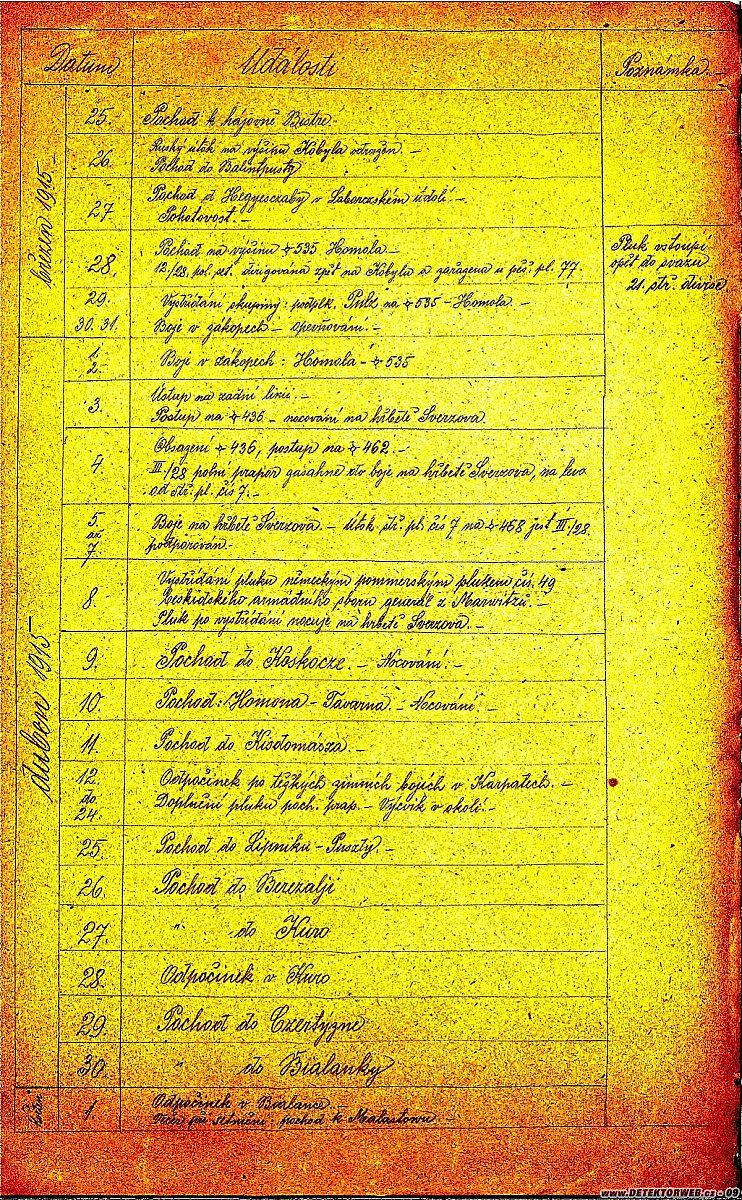 Datum Události Poznámka.-
březen 1915.-
25. Pochod k hájovně Bistre.-
26. Ruský útok na výšinu Kobyla odražen.-
Pochod do Balintpusty
27. Pochod d Hegyesczaby v Laborczském údolí.-
Pohotovost.-
28. Pochod na výšinu ⌖ 535 Homola.-
12./28. pol. set. dirigována zpět na Kobylu a u pěš. pl. 77.
Pluk vstoupí
opět do svazu
21. stř. divise
29. Vystřídání skupiny: podplk. na ⌖ 535 - Homola.-
30. 31. Boje v zákopech - opevňování.-
duben 1915
1.
2. Boje v zákopech: Homola - ⌖ 535
3. Ústup na zadní linii.-
Postup na ⌖ 436 - nocování na hřbetě Sverzova.
4. Obsazení ⌖ 436, postup na ⌖ 462.-
III./28 polní prapor zasáhne do boje na hřbetě Sverzova, na levo
od stř. pl. čís 7.-
5.
až
7. Boje na hřbetě Sverzova.- Útok stř. pl. čís 7 na ⌖ 468 jest III./28.
podporován.-
8. Vystřídání pluku německým pommerským plukem čís. 49
Beskidského armádního sboru generál z Marwitzů.-
Pluk po vystřídání nocuje na hřbetě Sverzova.-
9. Pochod do Koskocze.- Nocování.-
10. Pochod: Homona - Tavarna.- Nocování.-
11. Pochod do Kisdomásza.-
12.
do
24. Odpočinek po těžkých zimních bojích v Karpatech.-
Doplnění pluku poch. prap.- Výcvik v okolí.-
25. Pochod do Lipniku - Puszty.-
26. Pochod do Berezalji
27. " do Kuro
28. Odpočinek v Kuro
29. Pochod do Czertyzne
30. " do Bialanky
1. Odpočinek v Bialance.-
pochod k Malastowu.-
www.DETEKTORWEB.cz